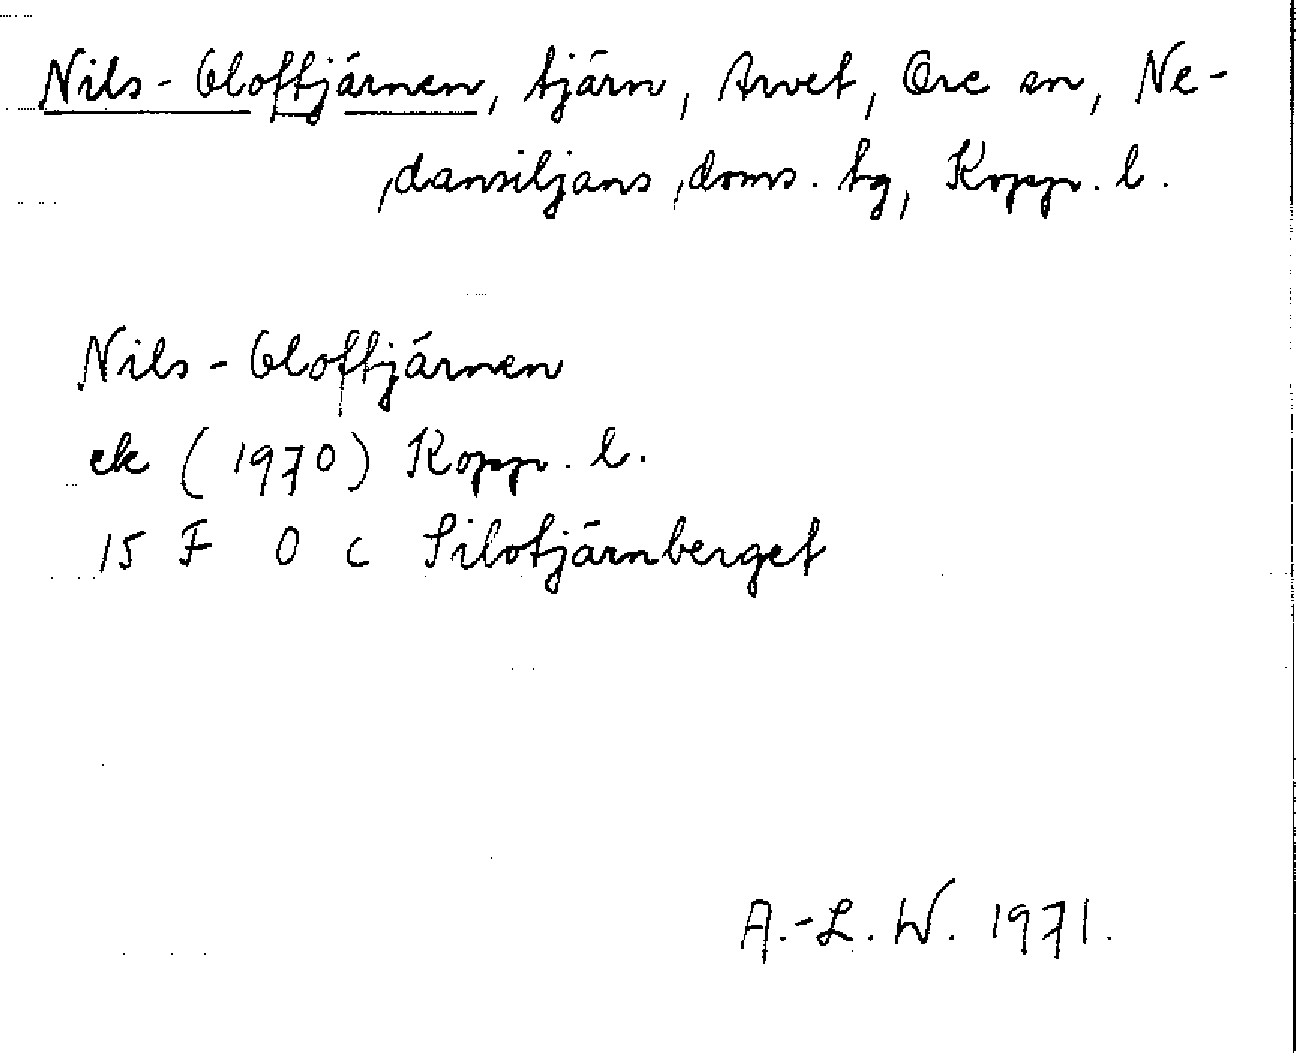 Nils-Oloftjärnen, tjärn, Arvet, Ore sn, Ne-
dansiljans doms. tg, Kopp. l.
Nils-Oloftjärnen
ek (1970) Kopp. l.
15 F 0 c Silotjärnberget
A.-L. W. 1971.